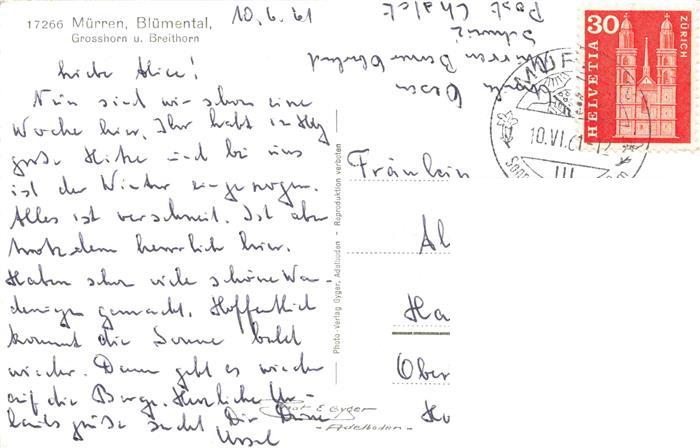 17266 Mürren, Blümental,
Grosshorn u. Breithorn
10.6.61
Liebe Alice!
Nun sind wir schon eine
Woche hier. Ihr habt in Hbg
große Hitze und bei uns
ist der Winter eingezogen.
Alles ist verschneit. Ist aber
trotzdem herrlich hier.
Haben schon viele schöne Wan-
derungen gemacht. Hoffentlich
kommt die Sonne bald
wieder. Dann geht es wieder
auf die Berge. Herzliche Ur-
laubsgrüße sendet Dir Deine
Ursel
Photo-Verlag Gyger, Adelboden - Reproduktion verboten
Phot E Gyger
-Adelboden-
Mürren Berner Oberland
Schweiz
Post Chalet
30
HELVETIA
ZÜRICH
MÜR
10.VI.61-12
Fräulein
Al
Ha
Ober